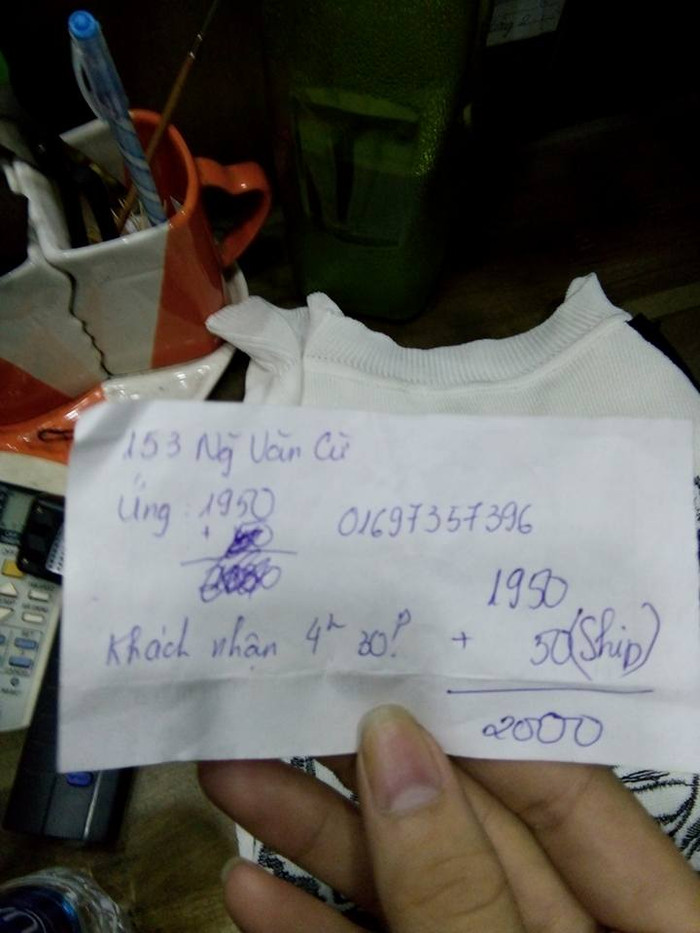 153 Ng̃ Văn Cừ
Ứng : 1950
+
01697357396
1950
Khách nhận 4h 30p
+ 50 (Ship)
2000